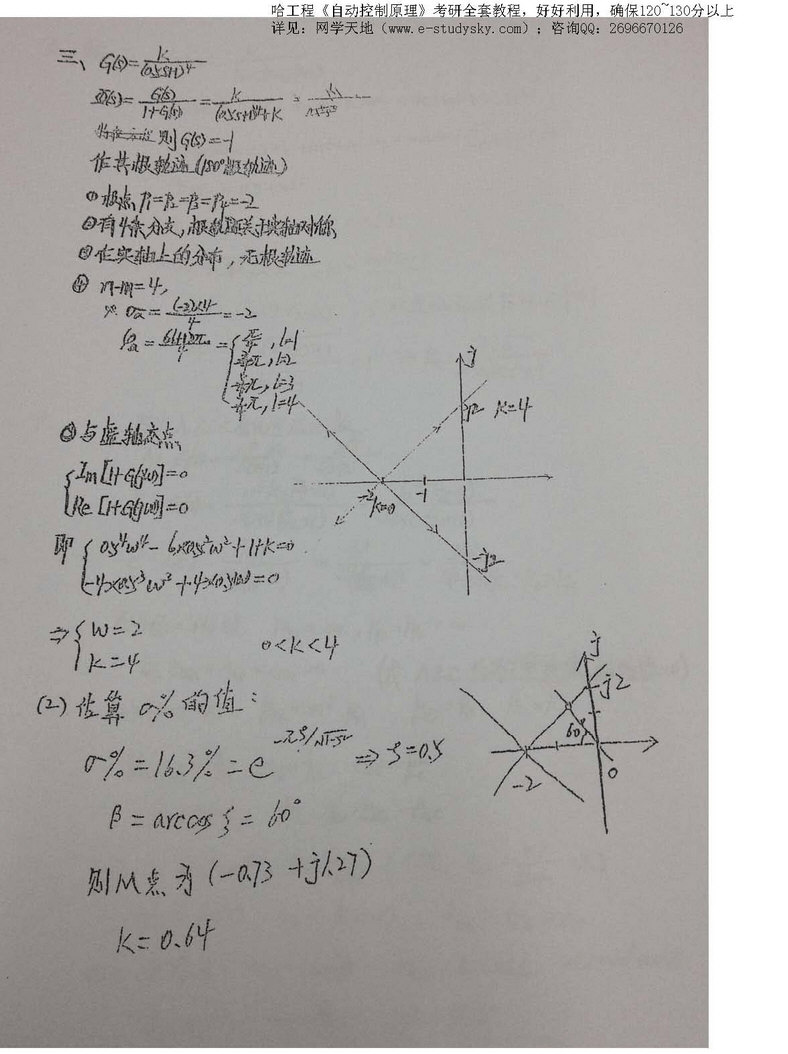 哈工程《自动控制原理》考研全套教程，好好利用，确保120~130分以上
详见：网学天地（www.e-studysky.com）；咨询QQ：2696670126
三、G(s)=K/(0.5s+1)^4
Φ(s)=G(s)/(1+G(s))=K/((0.5s+1)^4+K)=
则G(s)=-1
作其根轨迹(180°根轨迹)
① 极点 P1=P2=P3=P4=-2
②有4条分支，根轨迹关于实轴对称
③在实轴上的分布，无根轨迹
④ n-m=4,
σa=(-2)×4/4=-2
φa= ={π/4, l=1
3/4π, l=2
5/4π, l=3
7/4π, l=4
⑤与虚轴交点
{Im[1+G(jω)]=0
Re[1+G(jω)]=0
即{0.5^4ω^4-6×0.5^2ω^2+1+K=0
-4×0.5^3ω^3+4×0.5ω=0
⇒{ω=2
K=4
0<K<4
j
j2 K=4
-2 -1
K=0
-j2
(2) 估算σ%的值：
σ%=16.3%=e^(-πζ/√1-ζ²) ⇒ζ=0.5
β=arccosζ=60°
则M点为(-0.73+j1.27)
K=0.64
j
j2
60°
-2 0